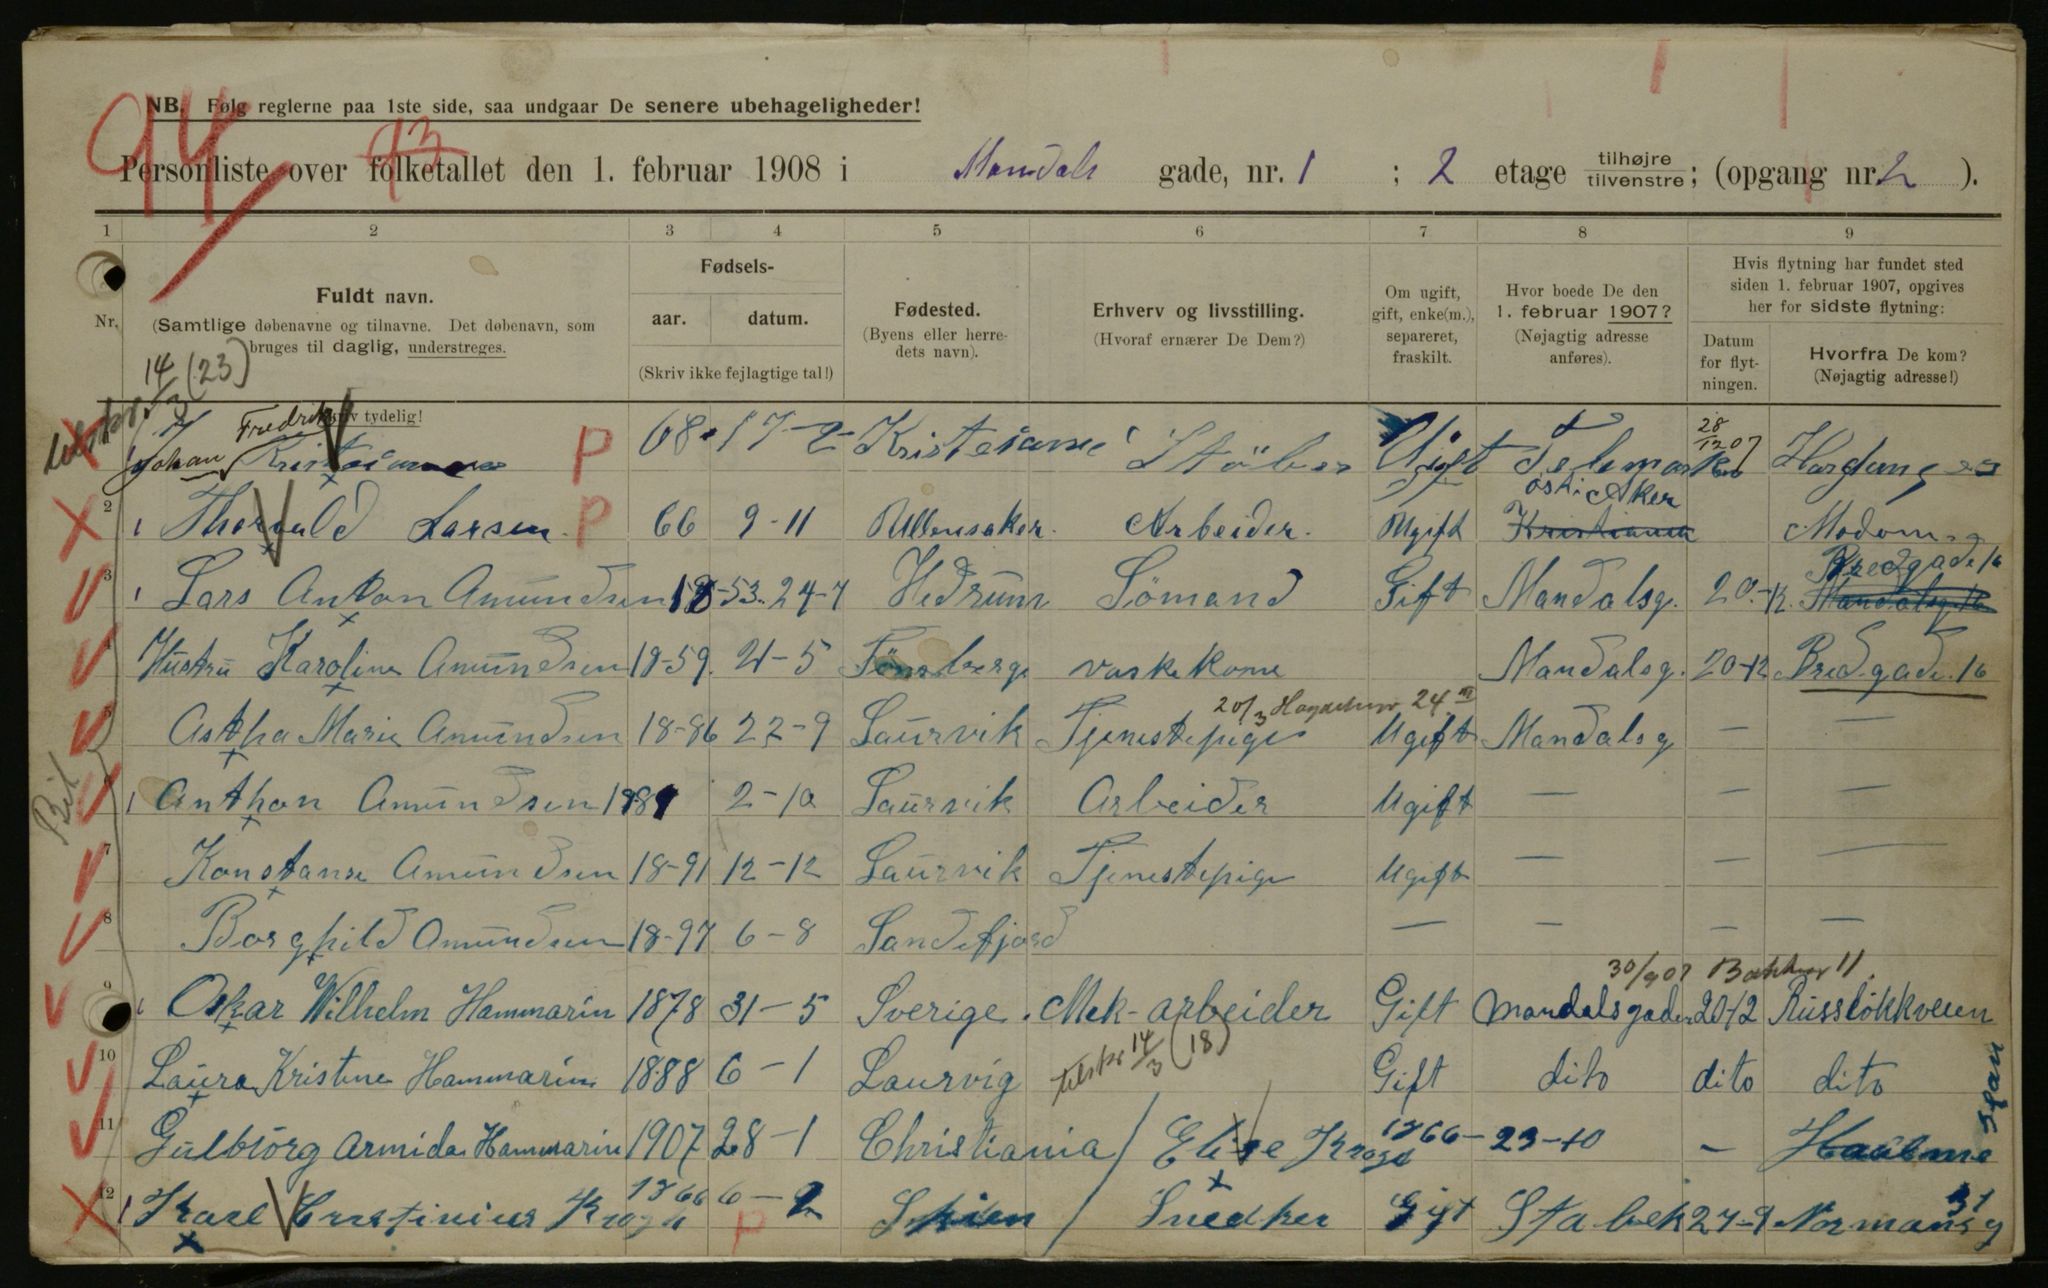 94
NB. Følg reglerne paa 1ste side, saa undgaar De senere ubehageligheder!
93
Personliste over folketallet den 1. februar 1908 i Mandals gade, nr. 1 ; 2 etage tilhøjre tilvenstre ; (opgang nr. 2 ).
1 2 3 4 5 6 7 8 9
Nr.
Fuldt navn.
(Samtlige døbenavne og tilnavne. Det døbenavn, som
bruges til daglig, understreges.
Skriv tydelig!
Fødsels-
aar. datum.
(Skriv ikke fejlagtige tal!)
Fødested.
(Byens eller herre-
dets navn).
Erhverv og livsstilling.
(Hvoraf ernærer De Dem?)
Om ugift,
gift, enke(m.),
separeret,
fraskilt.
Hvor boede De den
1. februar 1907?
(Nøjagtig adresse
anføres).
Hvis flytning har fundet sted
siden 1. februar 1907, opgives
her for sidste flytning:
Datum
for flyt-
ningen.
Hvorfra De kom?
(Nøjagtig adresse!)
14/3 (23)
Fredrik
28/12 07
Johan P 68 17-2 Ugift
østre Aker
2 Thorvald Larsen P 66 9-11 Ullensaker. Arbeider. Ugift Kristiania
Bredgade 16
3 Lars Anton Amundsen 18-53. 24-7 Hedrum Sømand Gift Mandalsg. 20-12. Mandalsg. 16
4 Hustru Karoline Amundsen 18-59. 21-5 Tønsberg vaskekone Mandalsg. 20-12 Bredgade. 16
20/3 24 III
5 Astha Marie Amundsen 18-86 22-9 Laurvik Tjenestepige Ugift Mandalsg — —
6 Anthon Amundsen 1889 2-10 Laurvik Arbeider Ugift — — —
7 Konstanse Amundsen 18-91 12-12 Laurvik Tjenestepige Ugift — — —
8 Borghild Amundsen 18-97 6-8 Sandefjord — — — —
30/9 07 11
9 Oskar Wilhelm Hammarin 1878 31-5 Sverige. Mek-arbeider Gift Mandalsgaden 20-12 Russløkkveien
10 Laura Kristine Hammarin 1888 6-1 Laurvig tilskr 14/3 (18) Gift dito dito dito
11 Gulborg Armida Hammarin 1907 28-1 Christiania / Elise Krogh 1866-23-10 —
12 Krogh 1866 6-2 P Skien / Snedker Gift Stabek 27-9 Normansg 31